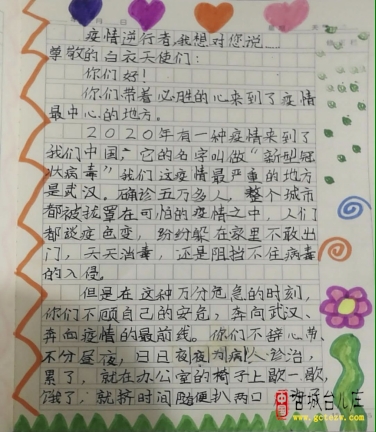 疫情逆行者我想对您说……
尊敬的白衣天使们：
你们好！
你们带着必胜的心来到了疫情
最中心的地方。
2020年有一种疫情来到了
我们中国，它的名字叫做“新型冠
状病毒”我们这疫情最严重的地方
是武汉。确诊五万多人，整个城市
都被笼罩在可怕的疫情之中，人们
都谈疫色变，纷纷躲在家里不敢出
门，天天消毒，还是阻挡不住病毒
的入侵。
但是在这种万分危急的时刻，
你们不顾自己的安危，奔向武汉、
奔向疫情的最前线。你们不辞心劳、
不分昼夜，日日夜夜为病人诊治，
累了，就在办公室的椅子上歇一歇，
饿了，就挤时间随便扒两口
中国 古城台儿庄
www.gctezw.com